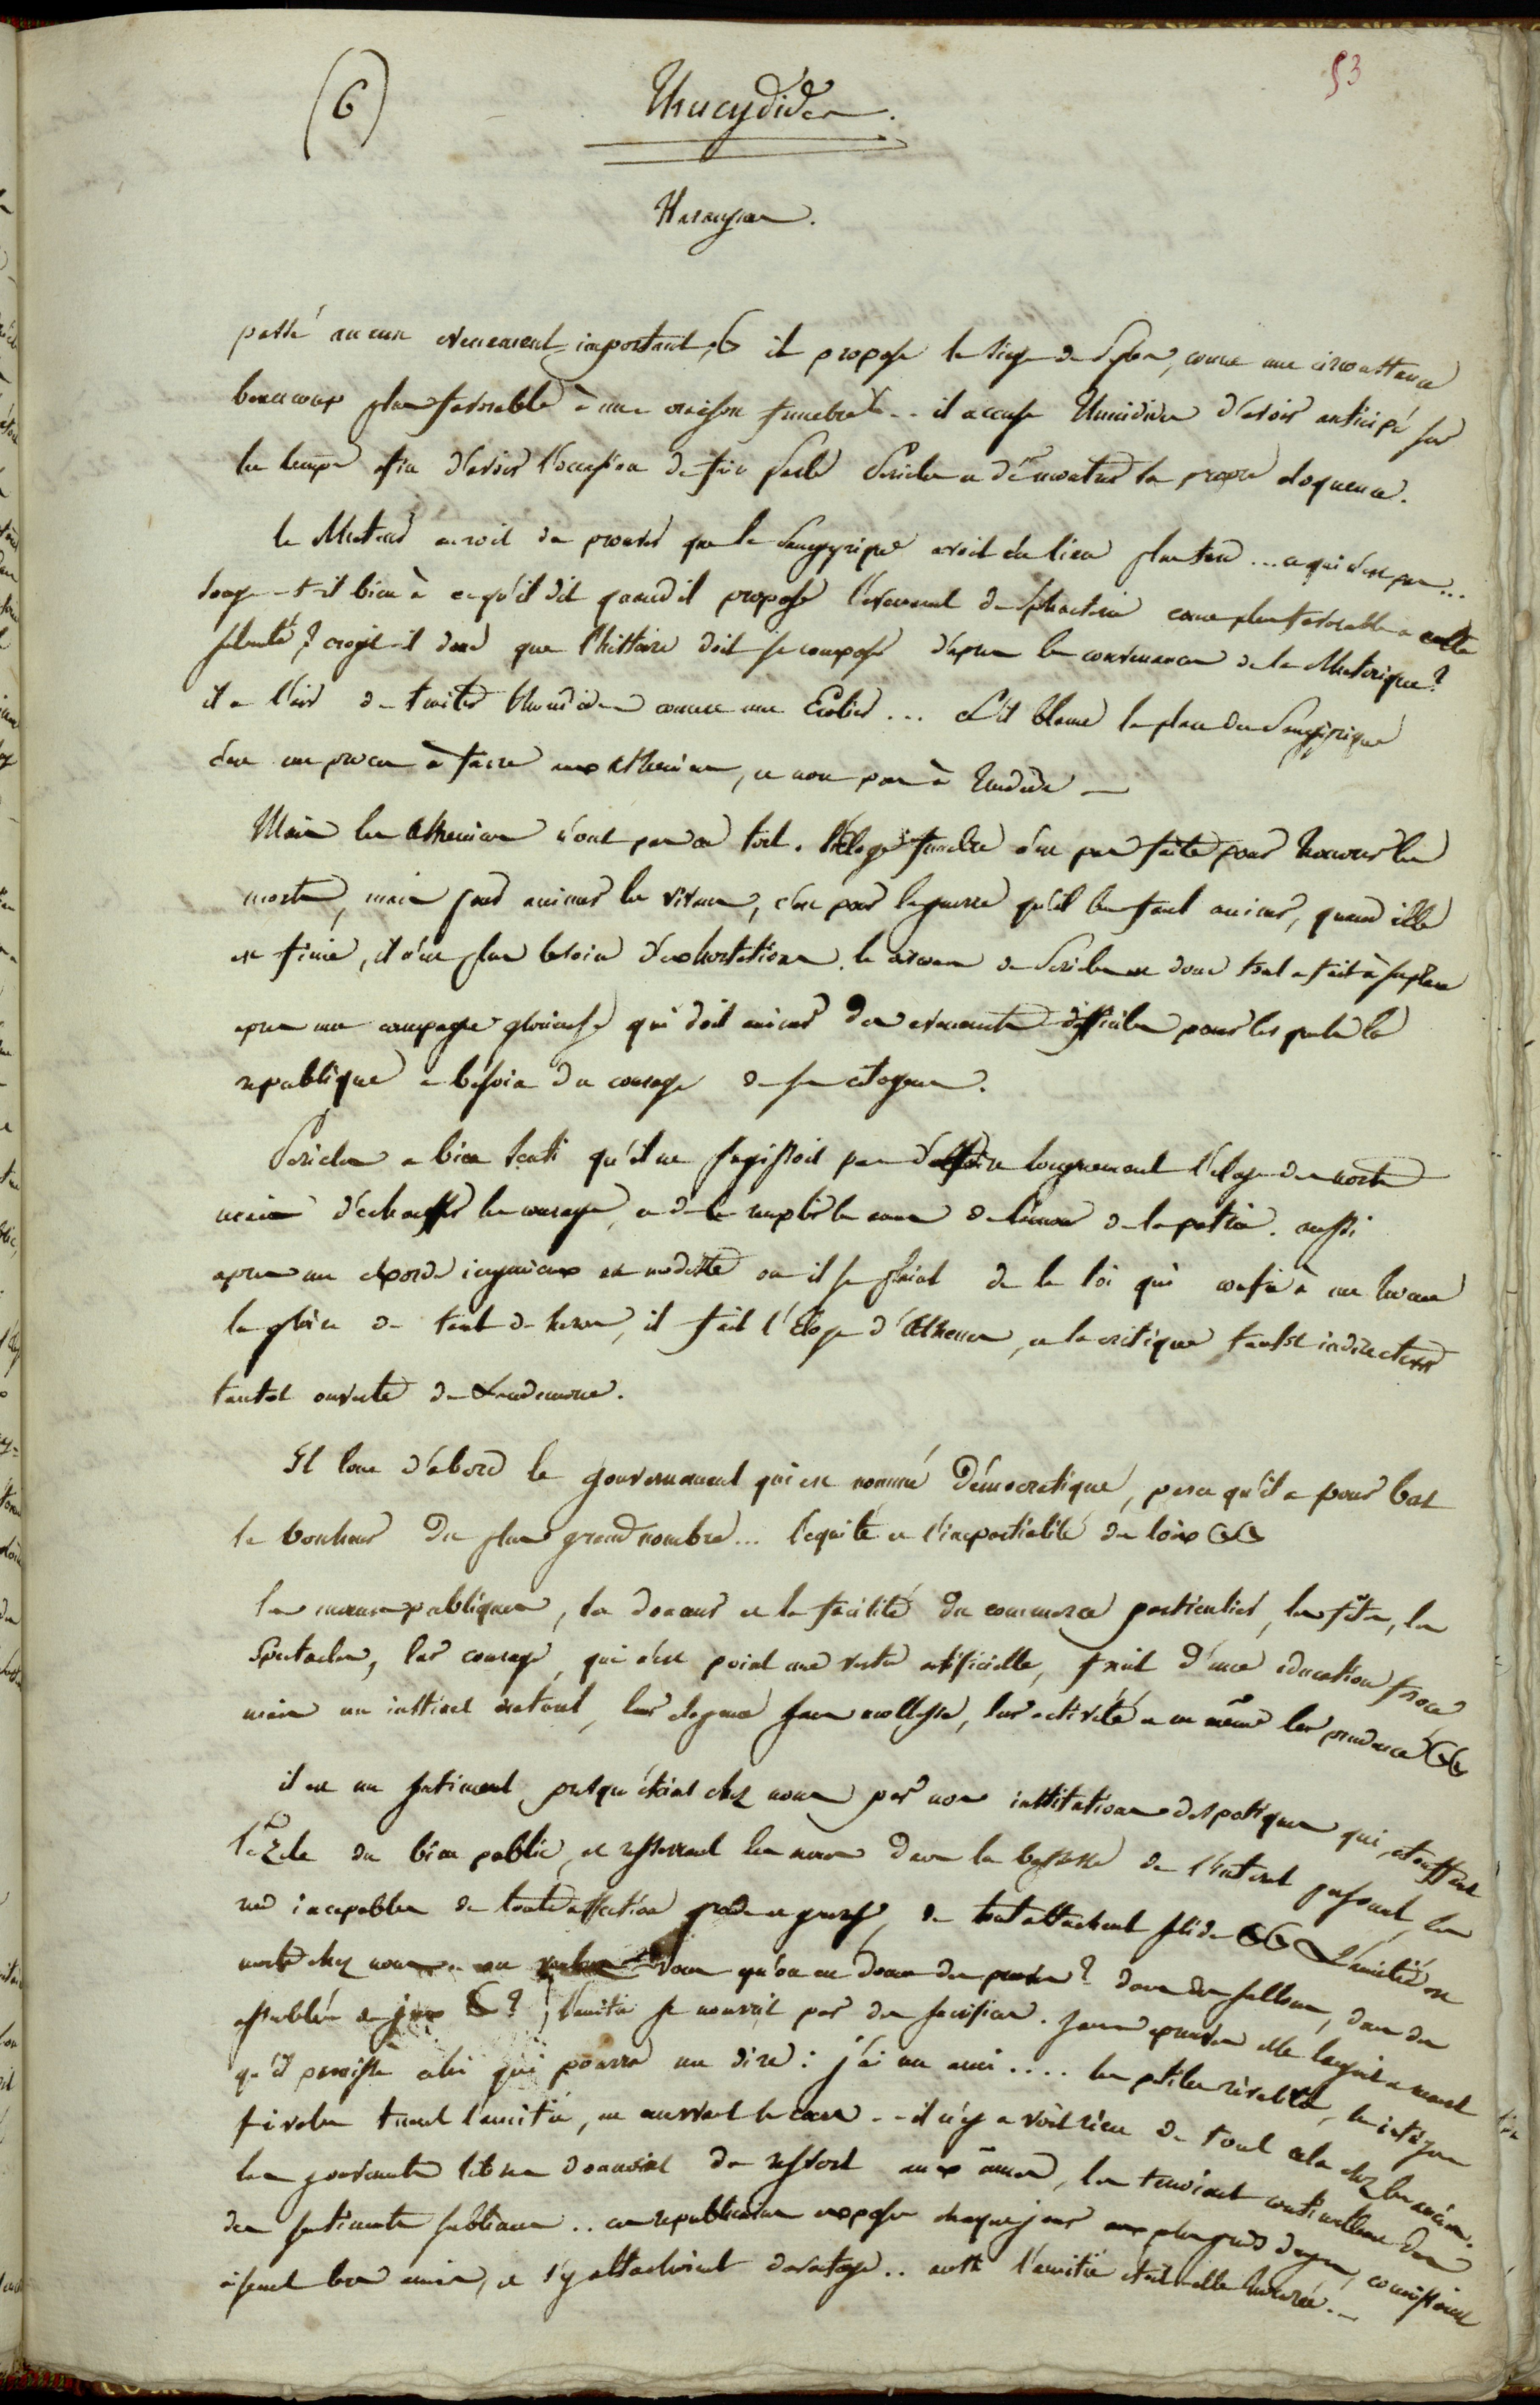 (6)
Thucydides.
53
Harangues.
passé aucun evenement important, & il propose le siege de Pylos, comme une circonstance
beaucoup plus favorable à une oraison funebre... il accuse Thucidides d'avoir anticipé sur
les temps afin d'avoir l'occasion de faire parler Pericles et de montrer sa propre eloquence.
le Rheteur auroit du prouver que le Panegyrique avoit eu lieu plus tard... ce qui n'est pas...
songe-t-il bien à ce qu'il dit quand il propose l'evenement de Sphacterie comme plus favorable a cette
solennité? croyoit-il donc que l'histoire doit se composer d'apres les convenances de la Rhetorique?
il a l'air de traiter Thucidides comme un Ecolier... S'il blame la place du Panegirique
c'est un proces à faire aux Atheniens, et non pas à Thucidide —
Mais les Atheniens n'ont pas ce tort. L'éloge funebre n'est pas faite pour honorer les
morts, mais pour animer les vivans, c'est pour la guerre qu'il les faut animer, quand elle
est finie, il n'est plus besoin d'exhortations. le discours de Pericles est donc tout a fait à sa place
apres une campagne glorieuse qui doit amener des evenements difficiles pour lesquels la
republique a besoin du courage de ses citoyens.
Pericles a bien senti qu'il ne s'agissoit pas de faire longuement l'eloge des morts
mais d'échauffer les courages, et de remplir les cœurs de l'amour de la patrie. aussi
apres un exorde ingenieux et modeste ou il se plaint de la loi qui confie à un homme
la gloire de tant de heros, il fait l'éloge d'Athenes, et la critique tantot indirecte
tantot ouverte de Lacedemone.
Il loue d'abord le gouvernement qui est nommé Démocratique, parce qu'il a pour but
le bonheur du plus grand nombre... l'equité et l'impartialité des loix &&
les mœurs publiques, la douceur et la facilité du commerce particulier, les fêtes, les
Spectacles, leur courage, qui n'est point une vertu artificielle, fruit d'une education feroce
mais un instinct naturel, leur elegance sans mollesse, leur activité et en même leur prudence &&
il est un sentiment presqu'éteint chez nous par nos institutions despotiques qui, etouffant
le zele du bien public, et resserrant les ames dans la bassesse de l'interet personnel, les
rend incapables de toute affection grande et genereuse, de tout attachement solide && L'amitié est
morte chez nous. ou voulez vous qu'on en donne des preuves? dans des sallons, dans des
assemblées de jeux &? l'amitié se nourrit par des sacrifices. sans preuves elle languit et meurt
qu'il paroisse celui qui pourra me dire: j'ai un ami.... les petites rivalités, les intrigues
frivoles tuent l'amitié, en enervant le cœur... il n'y avoit rien de tout cela chez les anciens.
les gouvernements libres donnoient du ressort aux âmes, les tenoient continuellement dans
des sentiments sublimes.. ces republicains exposés chaque jour aux plus grands dangers, connoissoient
aisement leurs amis, et s'y attachoient davantage.. aussi l'amitié etoit-elle honorée. —